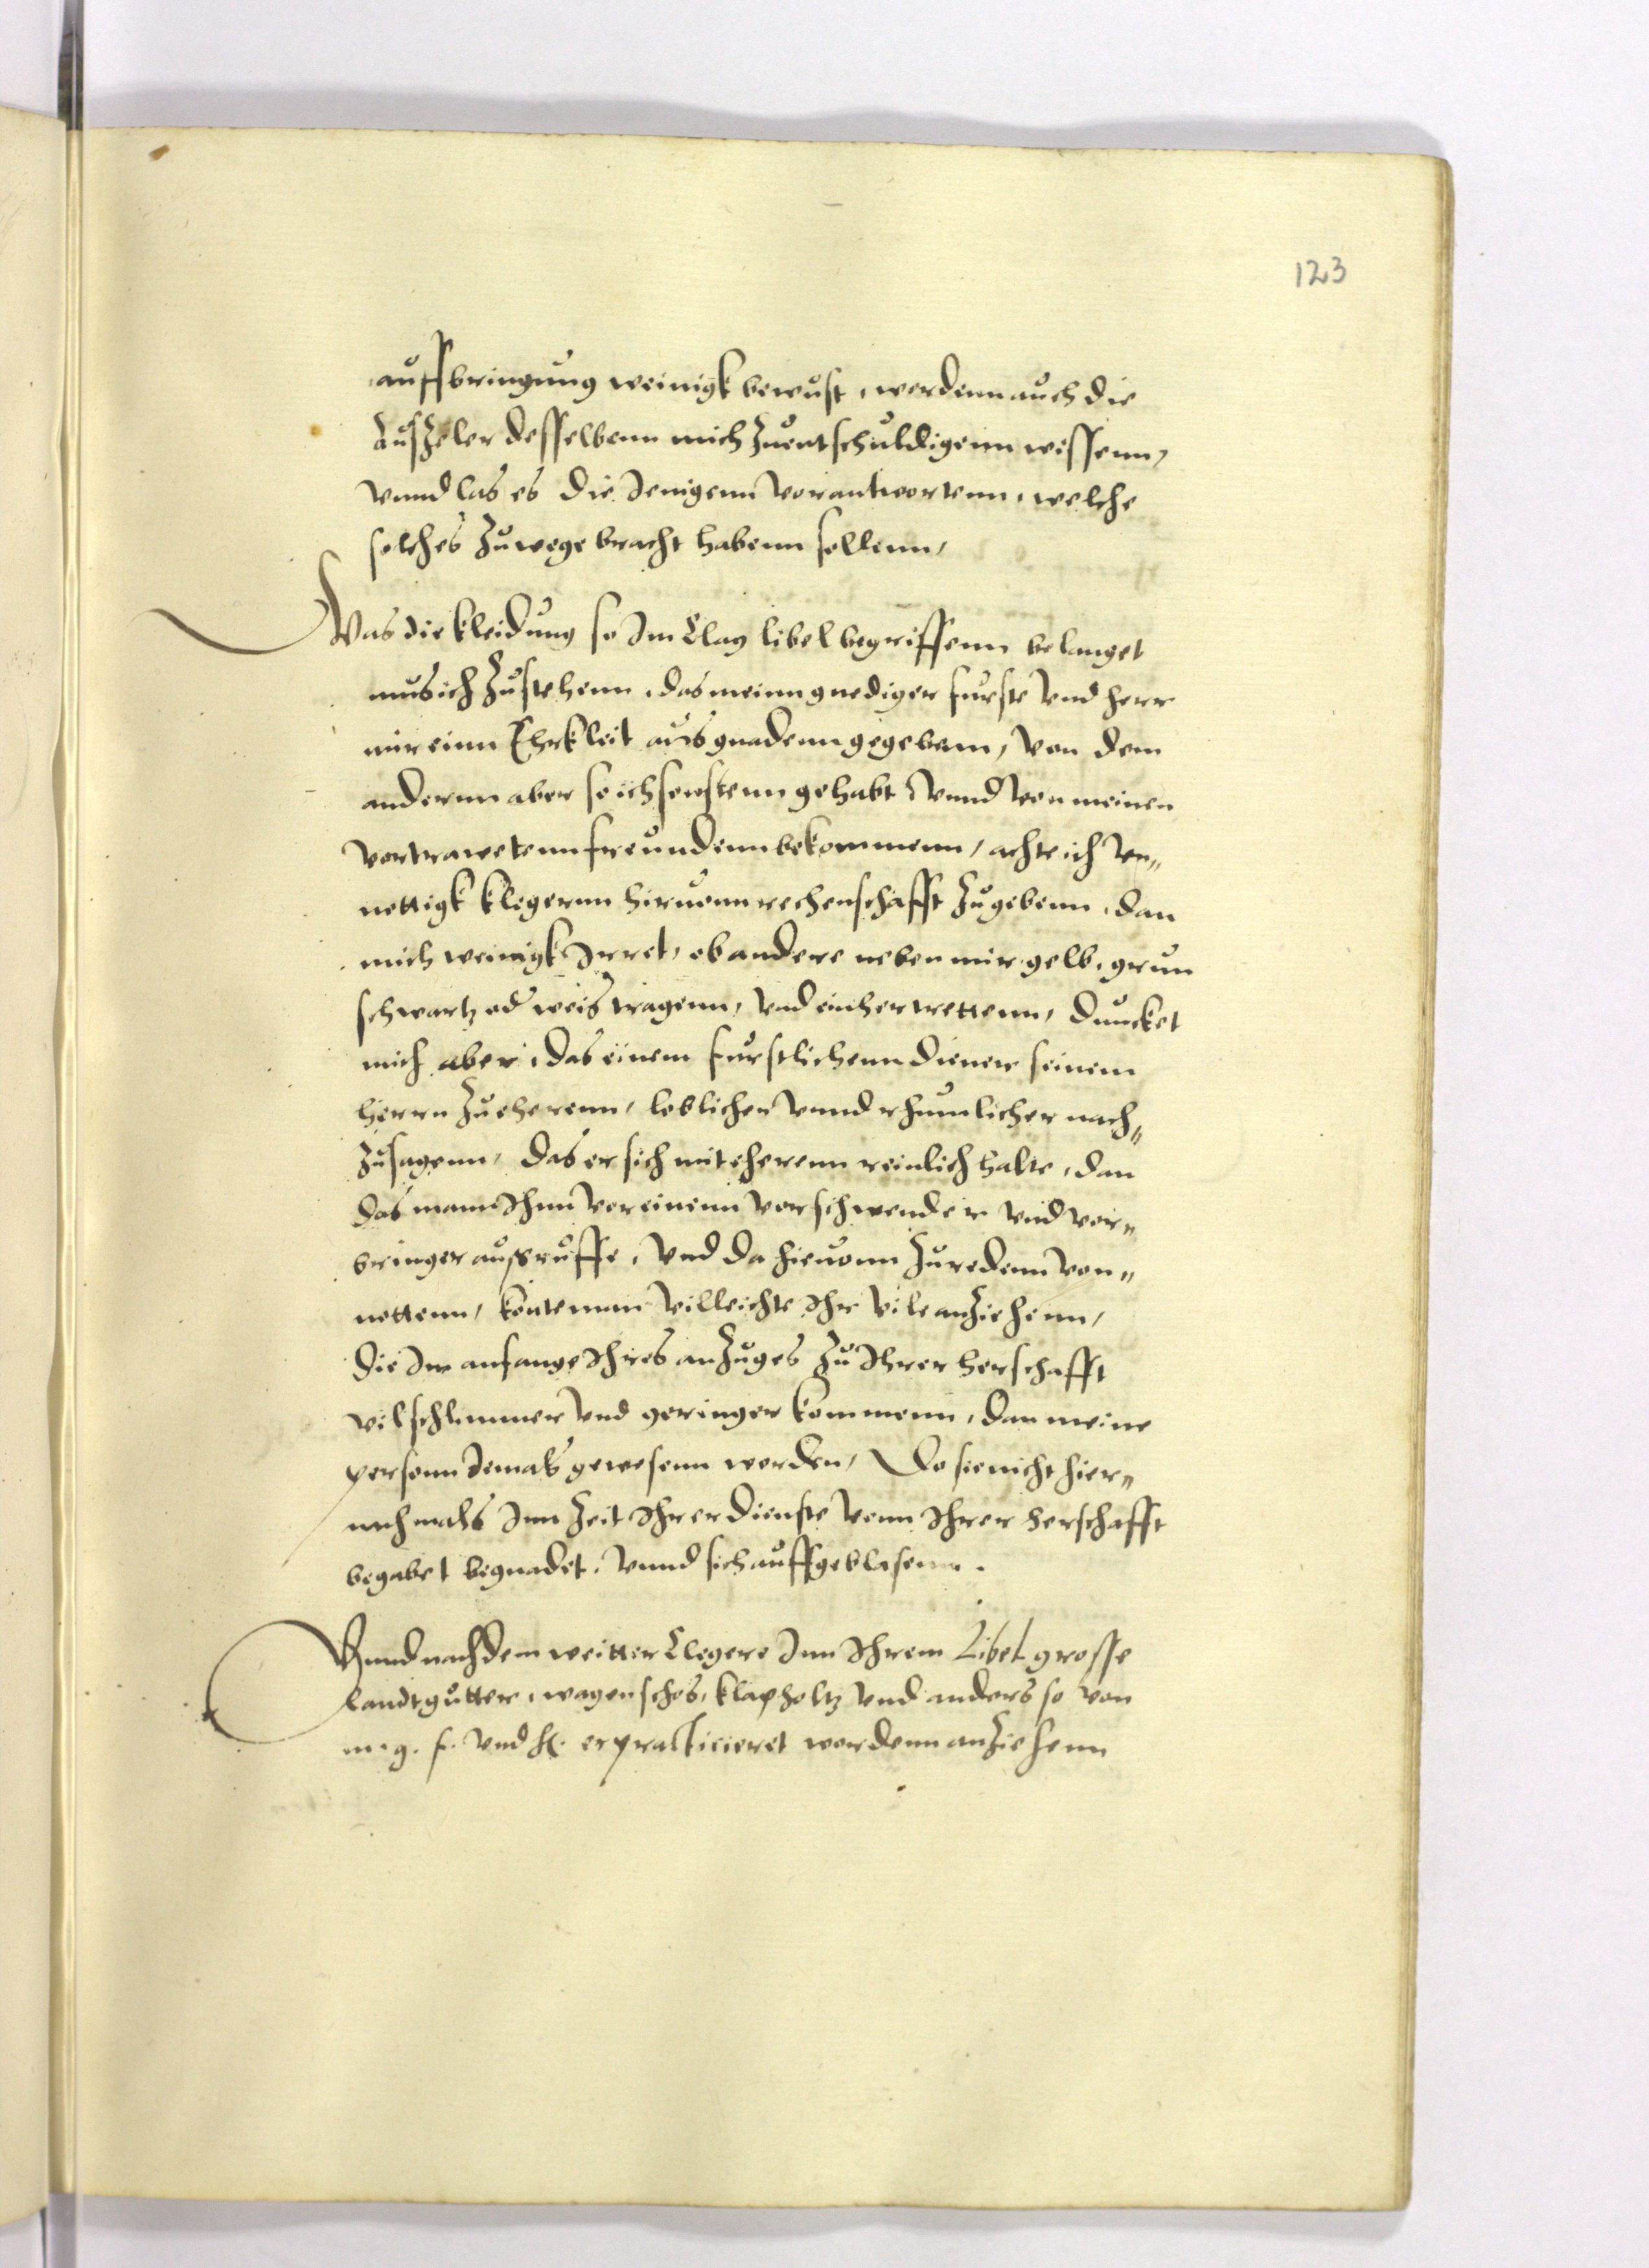 123
auffbringung weinigk bewust, werdenn auch die
Zuszeler desselbenn mich zuentschuldigenn wissenn,
vnnd las es die Jenigenn vorantwortenn, welche
solches zuwege bracht habenn sollenn,
Was die kleidung so Jm Clag libel begriffenn belanget
mus ich zustehenn, das meinn gnediger furste vnd herr
mir einn Ehrkleit aus gnadenn gegebenn, von dem
anderenn aber so ich sonstenn gehabt vnnd von meinen
vortrawetenn freundenn bekommenn, achte ich vn„
nottigk klegerenn hiruonn rechenschafft zugebenn, dan
mich weinigk Jrret, ob andere neben mir gelb, grun
schwartz od weis tragenn, vnd einher trettenn, duncket
mich aber, das einem furstlichenn diener seinem
herrn zu eherenn, loblicher vnnd rhumlicher nach„
zusagenn, das er sich mit eherenn reinlich halte, dan
das mann Jhnn vor einenn vorschwender vnd vor„
bringer ausruffe, vnd da hieuonn zuredenn von„
nottenn, konte man villeichte Jhr vile anziehenn,
die Jm anfange Jhres anzuges zu Jhrer herschafft
vil schlimmer vnd geringer kommenn, dan meine
personn Jemals gewesenn werden, Do sie nicht hier„
nachmals Jnn Zeit Jhrer dienste vonn Jhrer herschafft
begabet begnadet, vnnd sich auffgeblasenn.
Vnnd nach dem weitter Clegere Jnn Jhrem Libel grosse
landtgutter, wagenschos, klapholtz vnd anders so von
m. g. f. vnd H. erpracticieret wordenn anziehenn